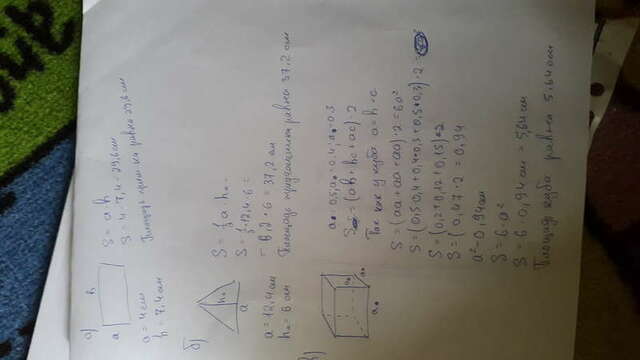 а)
b
a
S = a·b
S = 4·7,4 = 29,6 см
a = 4 см
b = 7,4 см
Площадь равна 29,6 см
б)
h
a
S = a·h
S = ·12,4·6 =
= 6,2·6 = 37,2 см
a = 12,4 см
h = 6 см
Площадь треугольника равна 37,2 см
в)
a = 0,5, a = 0,4, a = 0,3
S = (ab + bc + ac)·2
Так как у куба a = b = c
S = (aa + aa + aa)·2 = 6a²
S = (0,5·0,4 + 0,4·0,3 + 0,5·0,3)·2 =
S = (0,2 + 0,12 + 0,15)·2
S = (0,47·2 = 0,94
a² = 0,94 см
S = 6·a²
S = 6·0,94 см = 5,64 см
Площадь куба равна 5,64 см